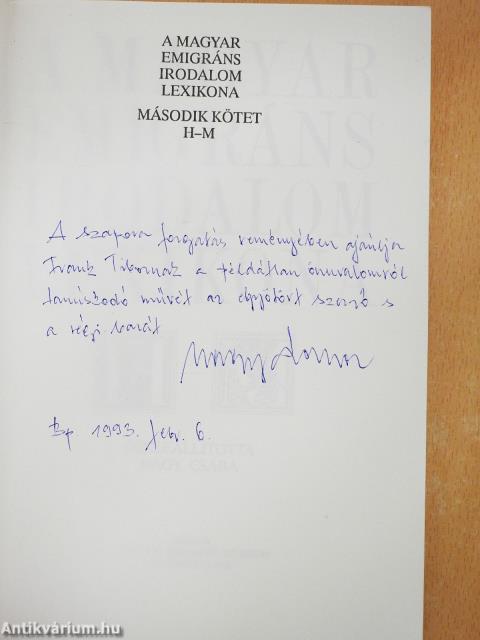 A MAGYAR
EMIGRÁNS
IRODALOM
LEXIKONA
MÁSODIK KÖTET
H–M
A szapora forgatás reményében ajánlja
Frank Tibornak a példátlan önuralomról
tanúskodó művét az elgyötört szerző s
a régi barát
Nagy Csaba
Bp 1993. febr. 6.
ÖSSZEÁLLÍTOTTA
NAGY CSABA
Antikvárium.hu